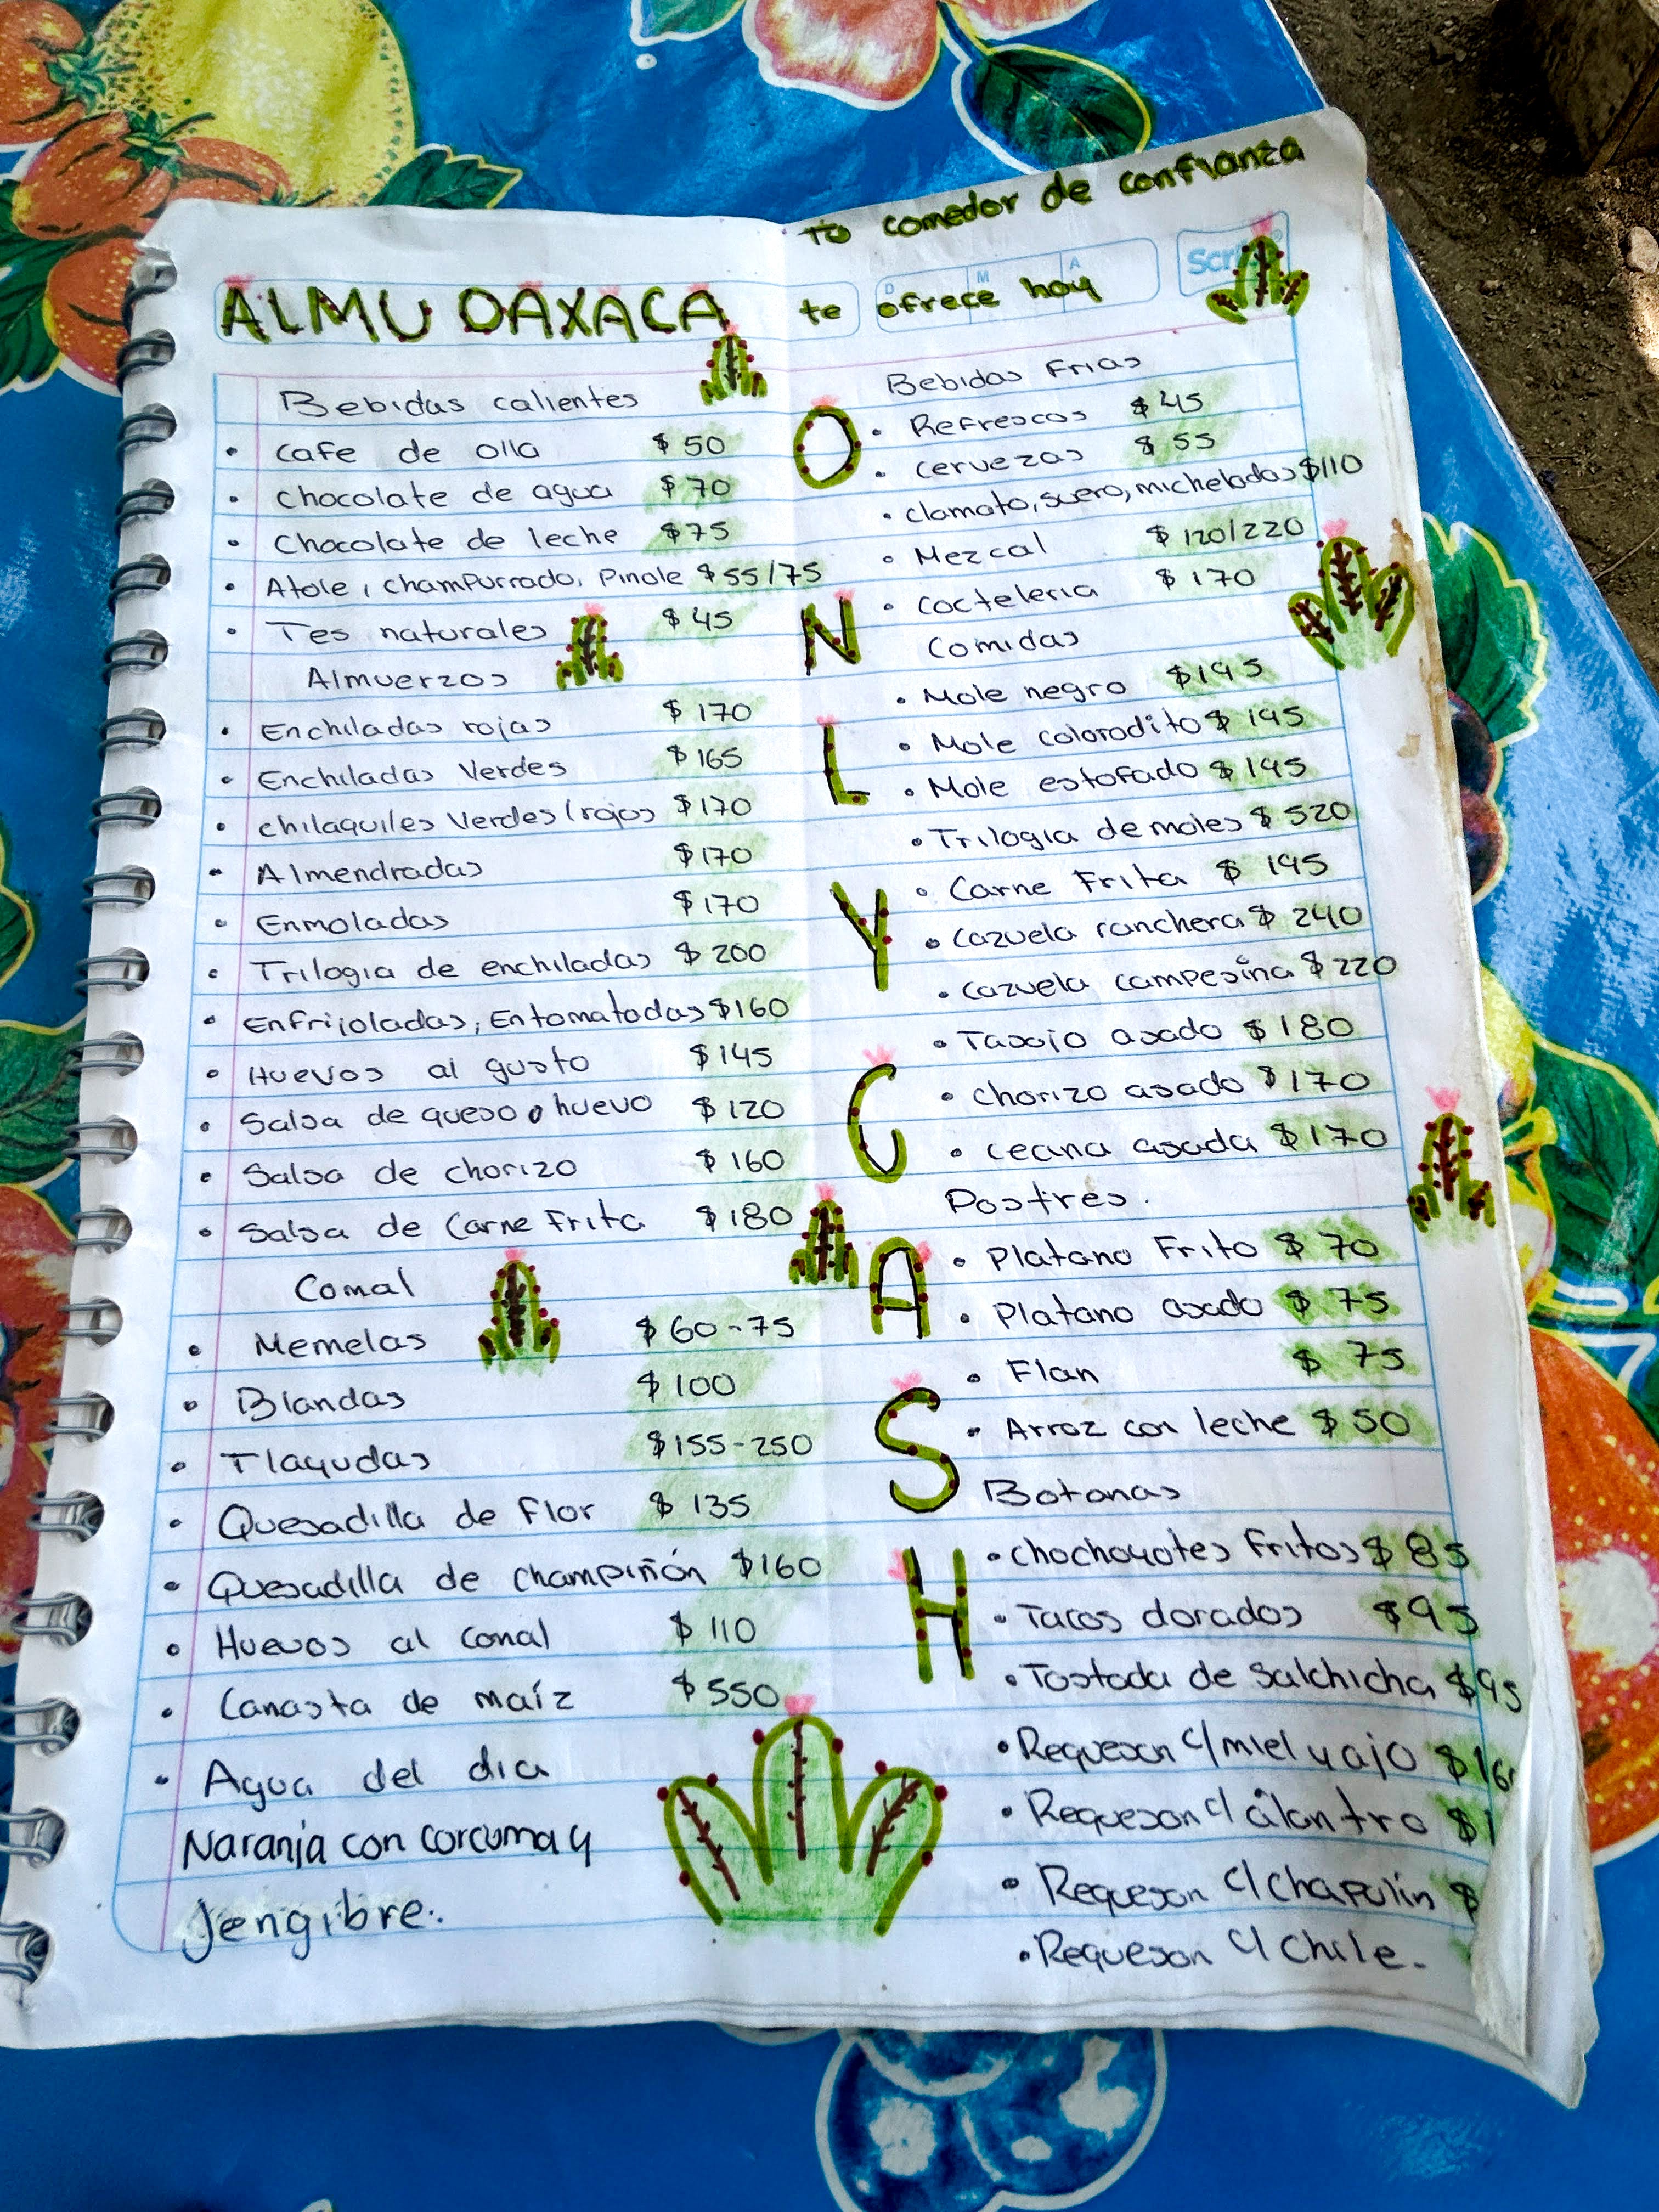 Tu comedor de confianza
ALMU OAXACA te ofrece hoy
D M A
Bebidas calientes
• Cafe de olla $ 50
• Chocolate de agua $ 70
• Chocolate de leche $ 75
• Atole, champurrado, Pinole $ 55/75
• Tes naturales $ 45
Almuerzos
• Enchiladas rojas $ 170
• Enchiladas Verdes $ 165
• Chilaquiles Verdes/rojos $ 170
• Almendradas $ 170
• Enmoladas $ 170
• Trilogia de enchiladas $ 200
• Enfrijoladas, Entomatadas $ 160
• Huevos al gusto $ 145
• Salsa de queso o huevo $ 120
• Salsa de chorizo $ 160
• Salsa de Carne Frita $ 180
Comal
• Memelas $ 60-75
• Blandas $ 100
• Tlayudas $ 155-250
• Quesadilla de Flor $ 135
• Quesadilla de champiñón $ 160
• Huevos al comal $ 110
• Canasta de maíz $ 550
• Agua del dia
Naranja con corcuma y
Jengibre.
ONLY CASH
Bebidas Frias
• Refrescos $ 45
• Cervezas $ 55
• Clamato, suero, micheladas $ 110
• Mezcal $ 120/220
• Cocteleria $ 170
Comidas
• Mole negro $ 195
• Mole colorodito $ 195
• Mole estofado $ 195
• Trilogia de moles $ 520
• Carne Frita $ 195
• Cazuela ranchera $ 240
• Cazuela campesina $ 220
• Tasajo asado $ 180
• Chorizo asado $ 170
• Ceana asada $ 170
Postres.
• Platano Frito $ 70
• Platano asado $ 75
• Flan $ 75
• Arroz con leche $ 50
Botanas
• Chochoyotes Fritos $ 85
• Tacos dorados $ 95
• Tostada de Salchicha $ 95
• Requeson c/miel y ajo $
• Requeson c/ cilantro $
• Requeson c/ Chapulin $
• Requeson c/ Chile.